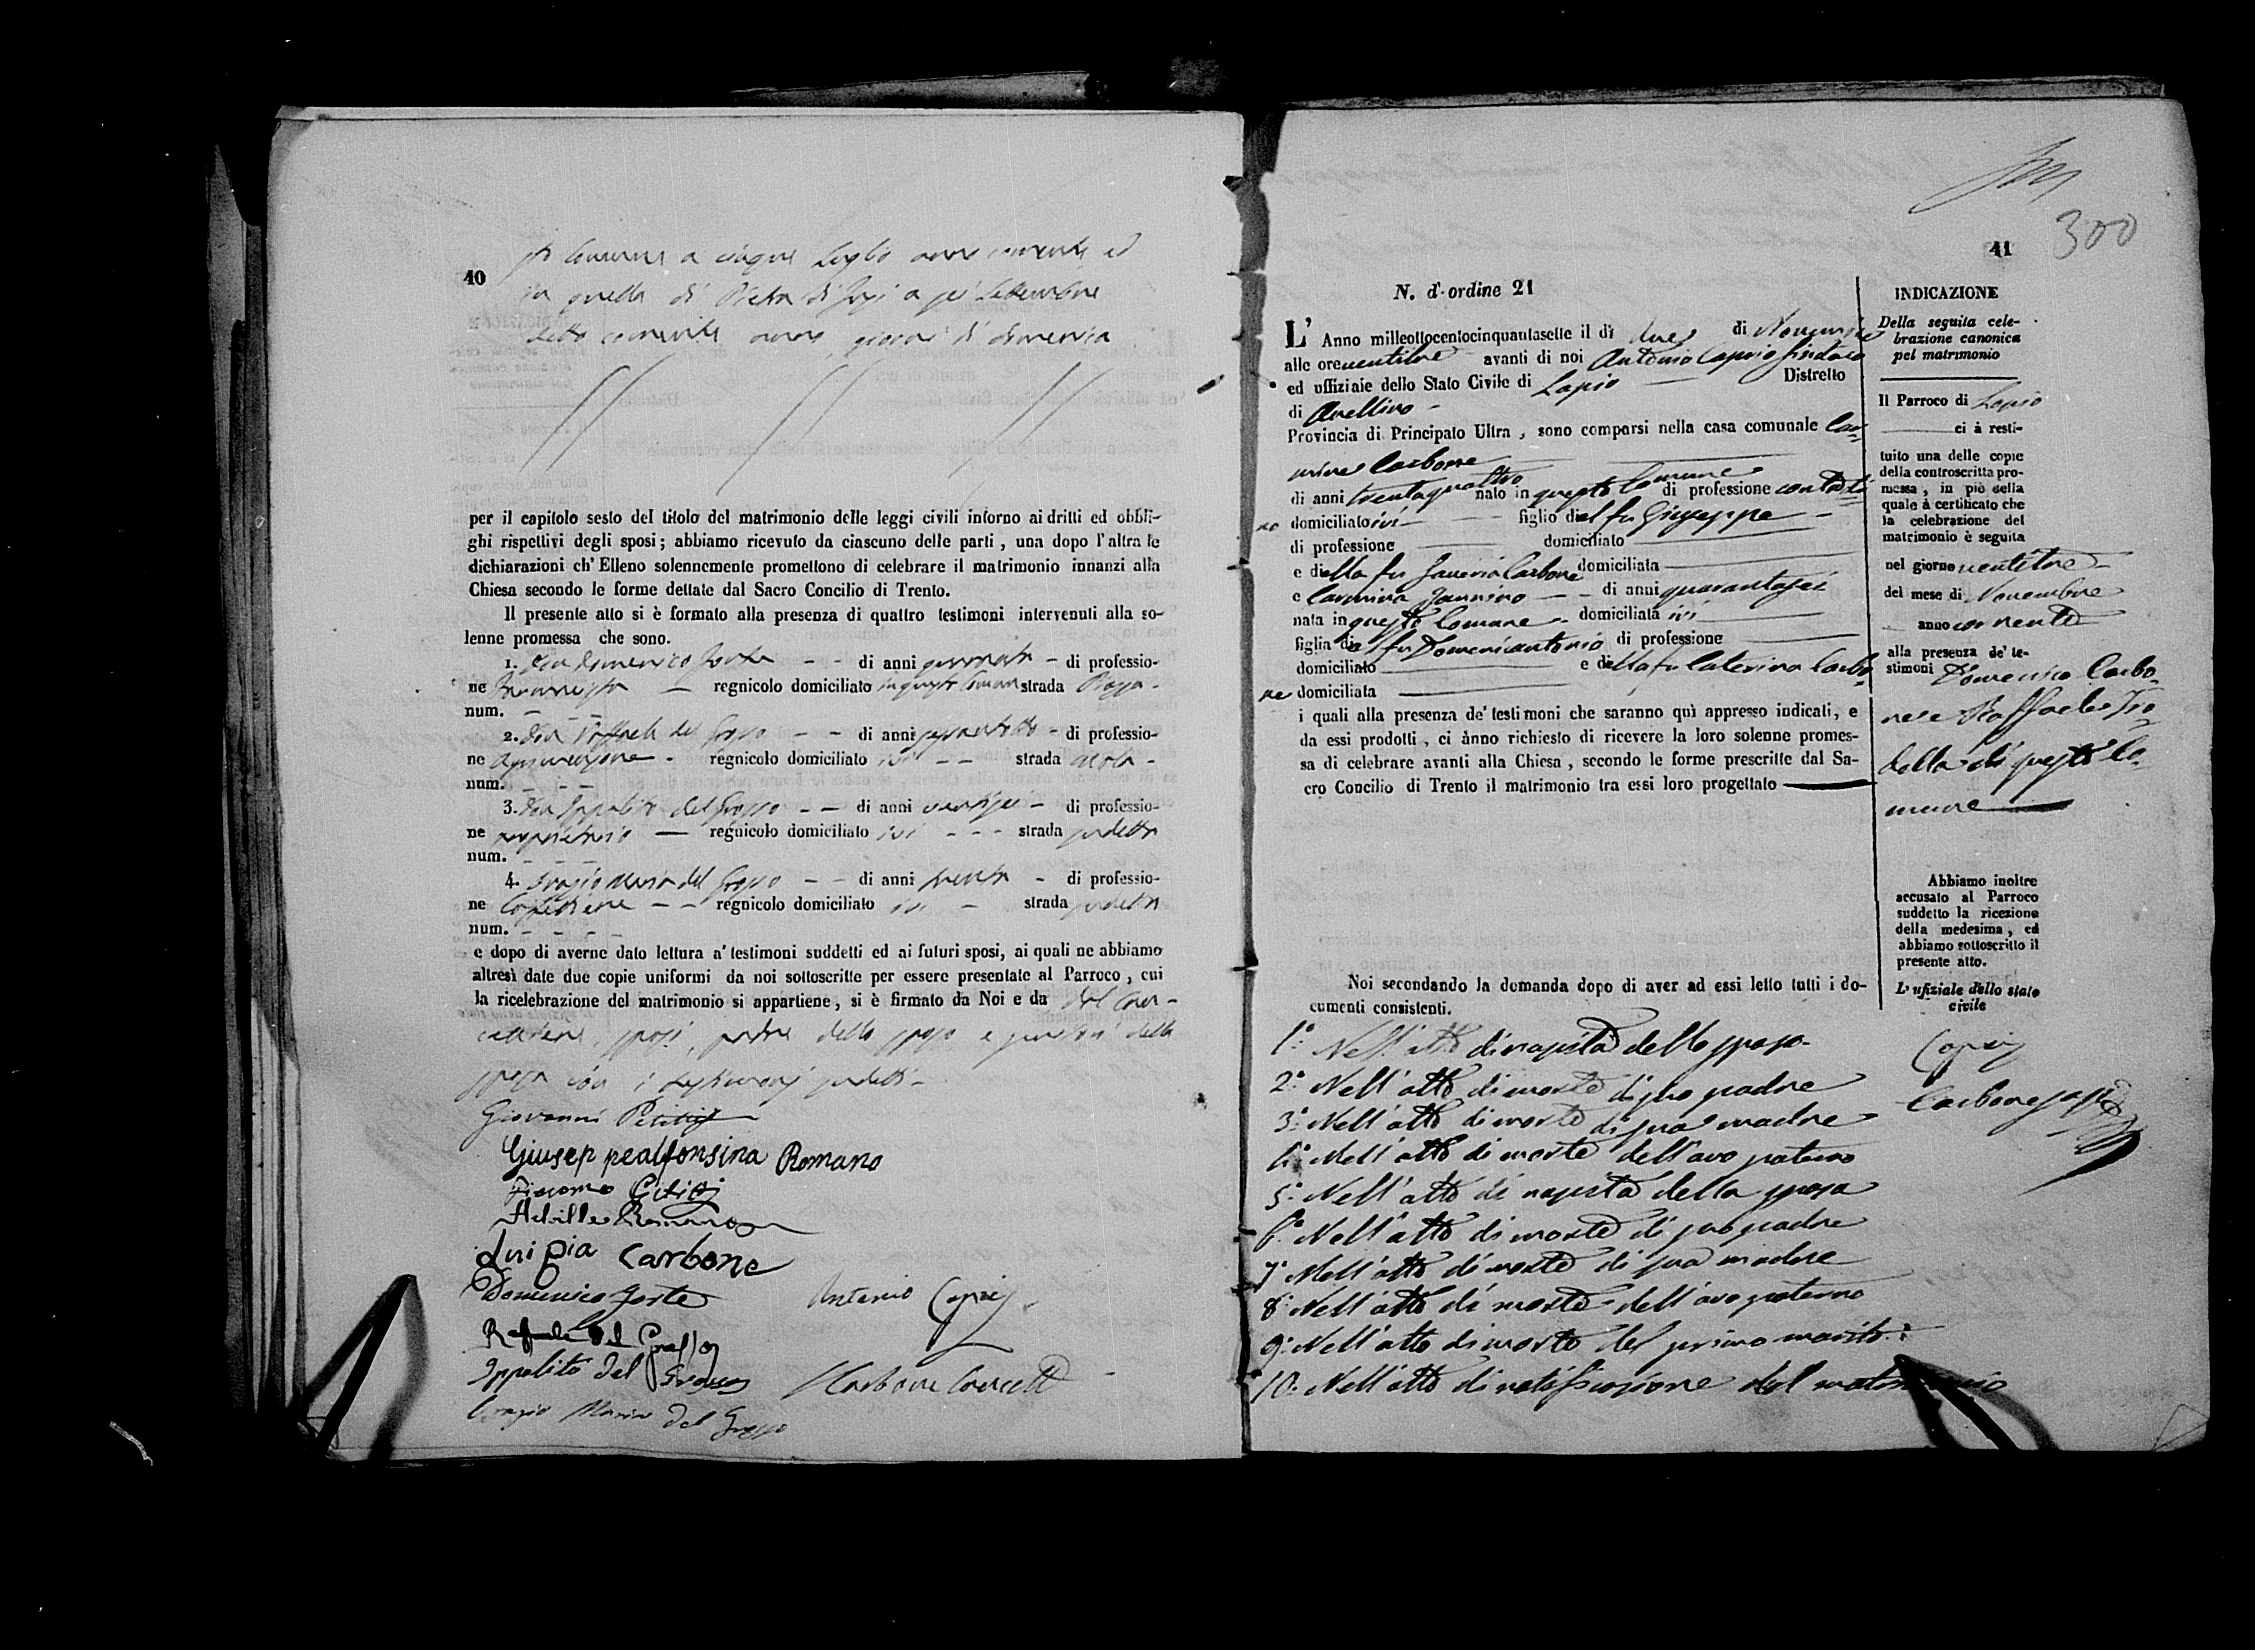 40
Comune a cinque Luglio anno corrente ed
in quella di Pietra di Fusi a sei Settembre
detto corrente anno, giorni di domenica
per il capitolo sesto del titolo del matrimonio delle leggi civili intorno ai dritti ed obbli-
ghi rispettivi degli sposi; abbiamo ricevuto da ciascuno delle parti, una dopo l'altra le
dichiarazioni ch' Elleno solennemente promettono di celebrare il matrimonio innanzi alla
Chiesa secondo le forme dettate dal Sacro Concilio di Trento.
Il presente atto si è formato alla presenza di quattro testimoni intervenuti alla so-
lenne promessa che sono.
1. Don Domenico Forte - - di anni - di professio-
ne — regnicolo domiciliato in questo Comune strada Piazza -
num. - - -
2. Don Raffaele del Grosso - - di anni - di professio-
ne - regnicolo domiciliato ivi - - strada
num. - - -
3. Don Ippolito del Grosso - - di anni ventisei - di professio-
ne proprietario — regnicolo domiciliato ivi - - - strada sudetta
num. - - -
4. Orazio Maria del Grosso - - di anni trenta - di professio-
ne - - regnicolo domiciliato ivi - strada sudetta
num. - - - -
e dopo di averne dato lettura a' testimoni suddetti ed ai futuri sposi, ai quali ne abbiamo
altresì date due copie uniformi da noi sottoscritte per essere presentate al Parroco, cui
la ricelebrazione del matrimonio si appartiene, si è firmato da Noi e da dal Can-
celliere, sposi, padre dello sposo e genitori della
sposa con i testimonj sudetti -
Giovanni Petitti
Giuseppealfonsina Romano
Giacomo Petitti
Achille Romano
Luigia Carbone
Domenico Forte
Antonio Caprio
Raffaele Del Grosso
Ippolito del Grosso
Carbone Cancell
Orazio Maria Del Grosso
300
41
N. d'ordine 21
L' Anno millottocentocinquantasette il dì due di Novembre
alle ore ventitre avanti di noi Antonio Caprio Sindaco
ed uffiziale dello Stato Civile di Lapio — Distretto
di Avellino -
Provincia di Principato Ultra, sono comparsi nella casa comunale Car-
mine Carbone
di anni trentaquattro nato in questo Comune di professione contadi-
no domiciliato ivi - figlio del fu Giuseppe -
di professione — domiciliato —
e della fu Saveria Carbone domiciliata —
e Carmina Jannino - - di anni quarantasei
nata in questo Comune - domiciliata ivi —
figlia di fu Domenicantonio di professione —
domiciliato — e della fu Caterina Carbo-
ne domiciliata —
i quali alla presenza de' testimoni che saranno quì appresso indicati, e
da essi prodotti, ci ànno richiesto di ricevere la loro solenne promes-
sa di celebrare avanti alla Chiesa, secondo le forme prescritte dal Sa-
cro Concilio di Trento il matrimonio tra essi loro progettato —
Noi secondando la domanda dopo di aver ad essi letto tutti i do-
cumenti consistenti.
1.° Nell'atto di nascita dello sposo
2.° Nell'atto di morte di suo padre
3.° Nell'atto di morte di sua madre
4.° Nell'atto di morte dell'avo paterno
5.° Nell'atto di nascita della sposa
6.° Nell'atto di morte di suo padre
7.° Nell'atto di morte di sua madre
8.° Nell'atto di morte dell'avo paterno
9.° Nell'atto di morte del primo marito
10.° Nell'atto di notificazione del matrimonio
INDICAZIONE
Della seguita cele-
brazione canonica
pel matrimonio
Il Parroco di Lapio
— ci à resti-
tuito una delle copie
della controscritta pro-
messa, in piè della
quale à certificato che
la celebrazione del
matrimonio è seguita
nel giorno ventitre
del mese di Novembre
anno corrente
alla presenza de' te-
stimoni Domenico Carbo-
ne e Raffaele Tro-
della di questo Co-
mune
Abbiamo inoltre
accusato al Parroco
suddetto la ricezione
della medesima, ed
abbiamo sottoscritto il
presente atto.
L'ufiziale dello stato
civile
Caprio
Carbone